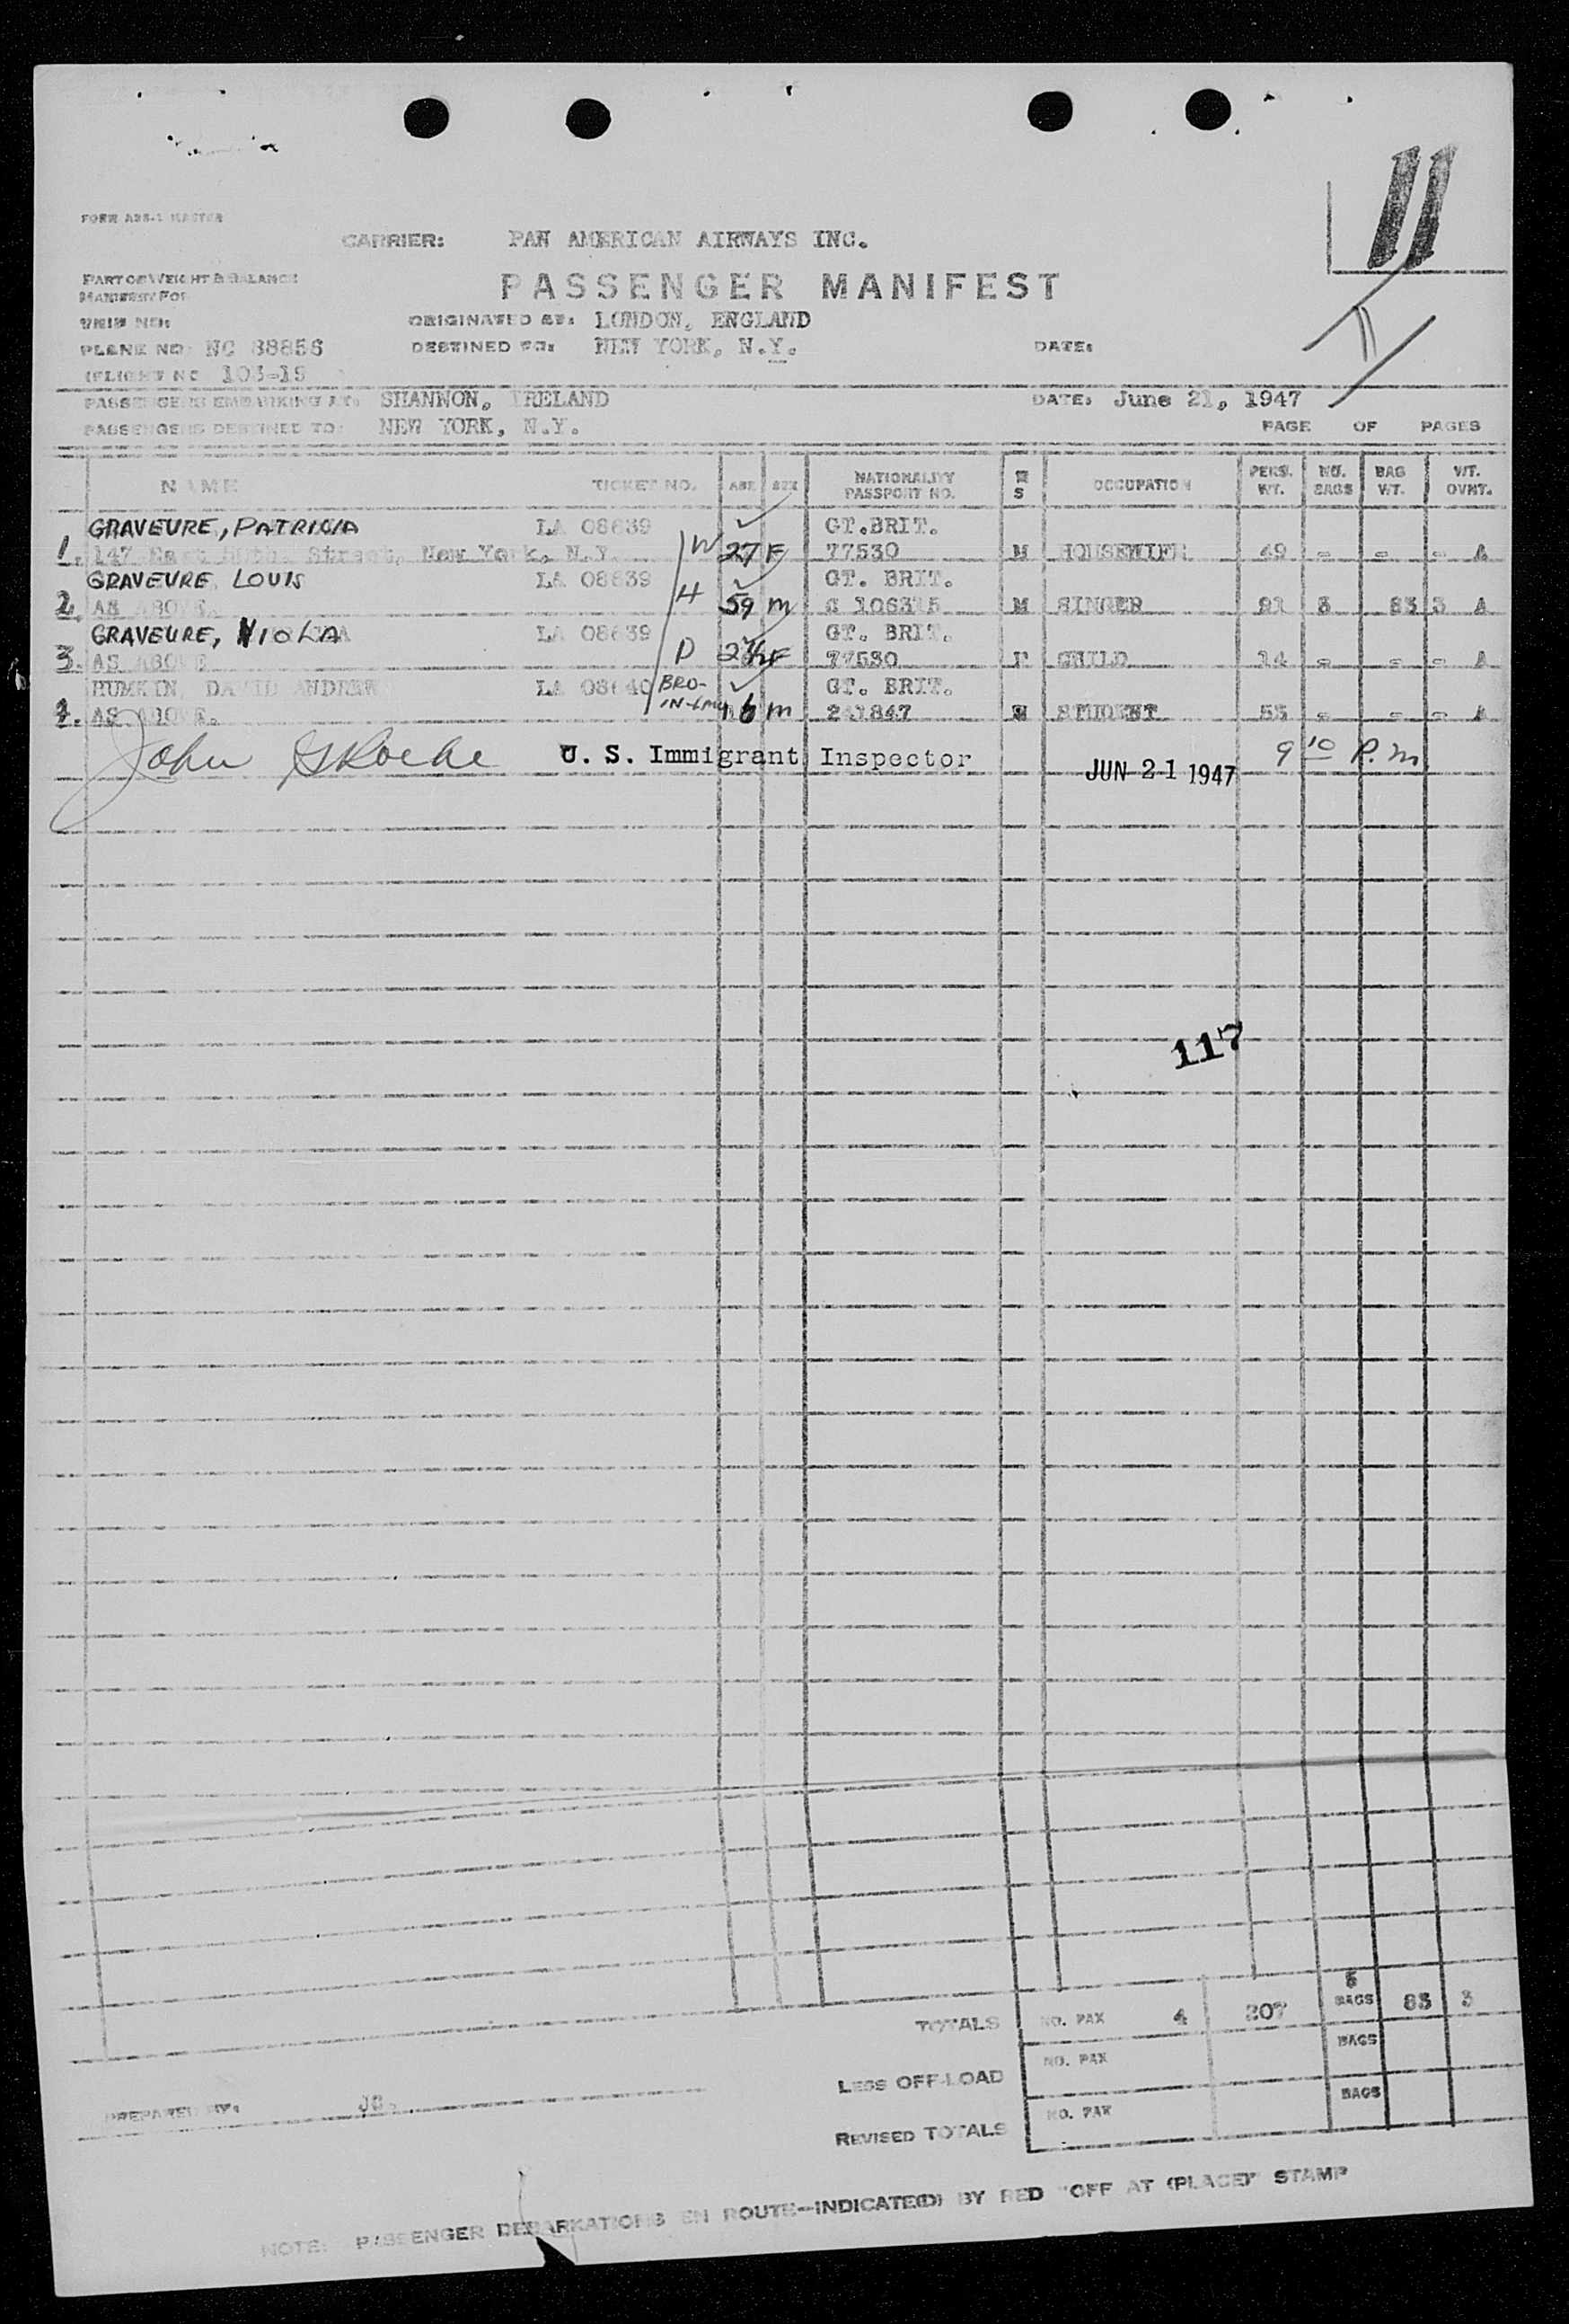 11
FORM ABS-1 MASTER
CARRIER: PAN AMERICAN AIRWAYS INC.
PART OF WEIGHT & BALANCE
MANIFEST FOR
PASSENGER MANIFEST
TRIP NO:
ORIGINATED AT: LONDON, ENGLAND
PLANE NO NC 88856
DESTINED TO: NEW YORK, N.Y.
DATE:
(FLIGHT NO 103-19
PASSENGERS EMBARKING AT: SHANNON, IRELAND
DATE: June 21, 1947
PASSENGERS DESTINED TO: NEW YORK, N.Y.
PAGE OF PAGES
NAME TICKET NO. AGE SEX NATIONALITY PASSPORT NO. M S OCCUPATION PERS. WT. NO. BAGS BAG WT. WT. OVHT.
GRAVEURE, PATRICIA LA 08639 GT.BRIT.
1. 147 East 50th. Street, New York, N.Y. W 27 F 77530 M HOUSEWIFE 49 - - - A
GRAVEURE, LOUIS LA 08639 GT. BRIT.
2. AS ABOVE. H 59 M C 106315 M SINGER 91 83 3 A
GRAVEURE, VIOLA LA 08639 GT. BRIT.
3. AS ABOVE D 2½ F 77530 CHILD 14 - - - A
DAVID ANDREW LA 08640 BRO- GT. BRIT.
4. AS ABOVE. IN-LAW 16 M 241847 STUDENT 53 - - - A
John U. S. Immigrant Inspector JUN 21 1947 9 10 P.M.
117
TOTALS NO. PAX 4 207 BAGS 83 3
LESS OFF-LOAD NO. PAX BAGS
REVISED TOTALS NO. PAX BAGS
PREPARED BY:
NOTE: PASSENGER DEBARKATIONS EN ROUTE—INDICATE(D) BY RED "OFF AT (PLACE)" STAMP